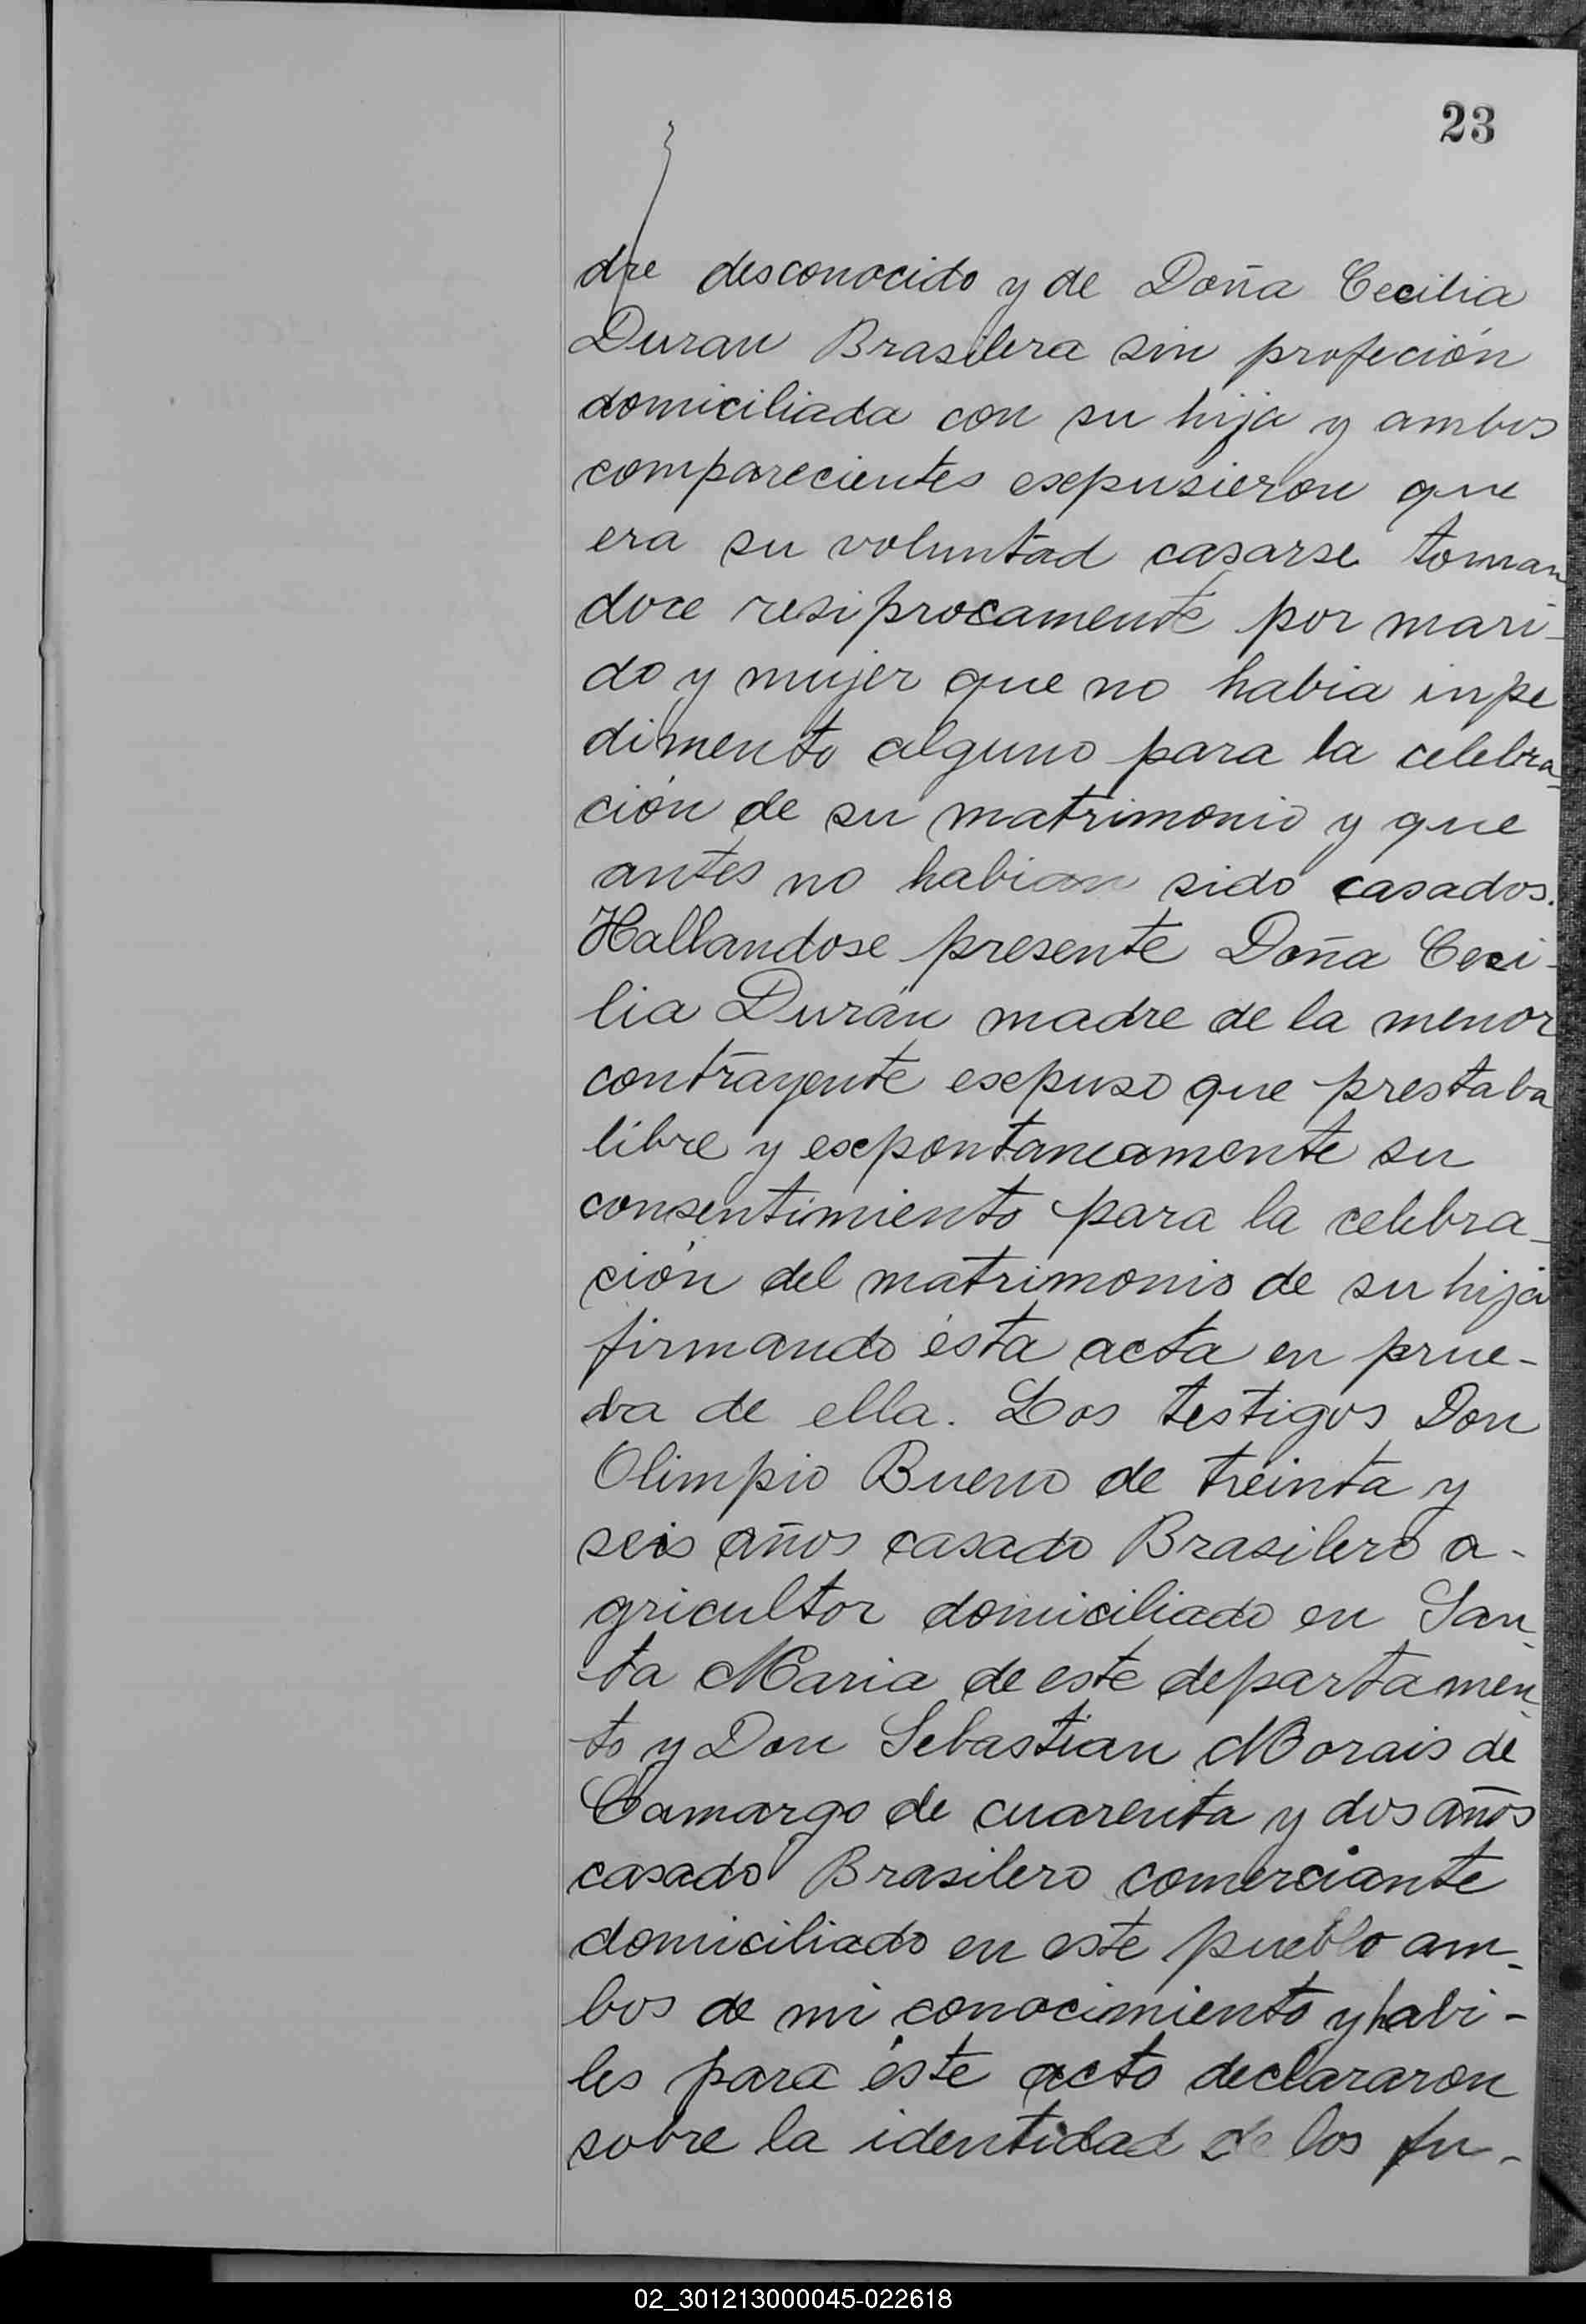 23
dre desconocido y de Doña Cecilia
Duran Brasilera sin profeción
domiciliada con su hija y ambos
comparecientes exepusieron que
era su voluntad casarse toman
doce resiprocamente por mari-
do y mujer que no habia inpe
dimento alguno para la celebra-
ción de su matrimonio y que
antes no habian sido casados.
Hallandose presente Doña Ceci-
lia Durán madre de la menor
contrayente exepuso que prestaba
libre y exepontaneamente su
consentimiento para la celebra-
ción del matrimonio de su hija
firmando ésta acta en prue-
va de ella. Los testigos Don
Olimpio Bueno de treinta y
seis años casado Brasilero a-
gricultor domiciliado en San-
ta Maria de este departamen-
to y Don Sebastian Morais de
Camargo de cuarenta y dos años
casado Brasilero comerciante
domiciliado en este pueblo am-
bos de mi conocimiento y habi-
les para éste acto declararon
sobre la identidad de los fu-
02_301213000045-022618